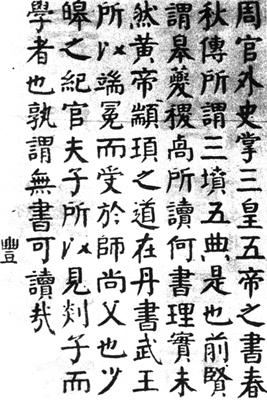 周官外史掌三皇五帝之書春
秋傳所謂三墳五典是也前賢
謂皋夔稷卨所讀何書理實未
然黃帝顓頊之道在丹書武王
所以端冕而受於師尚父也少
皞之紀官夫子所以見剡子而
學者也孰謂無書可讀哉
豐